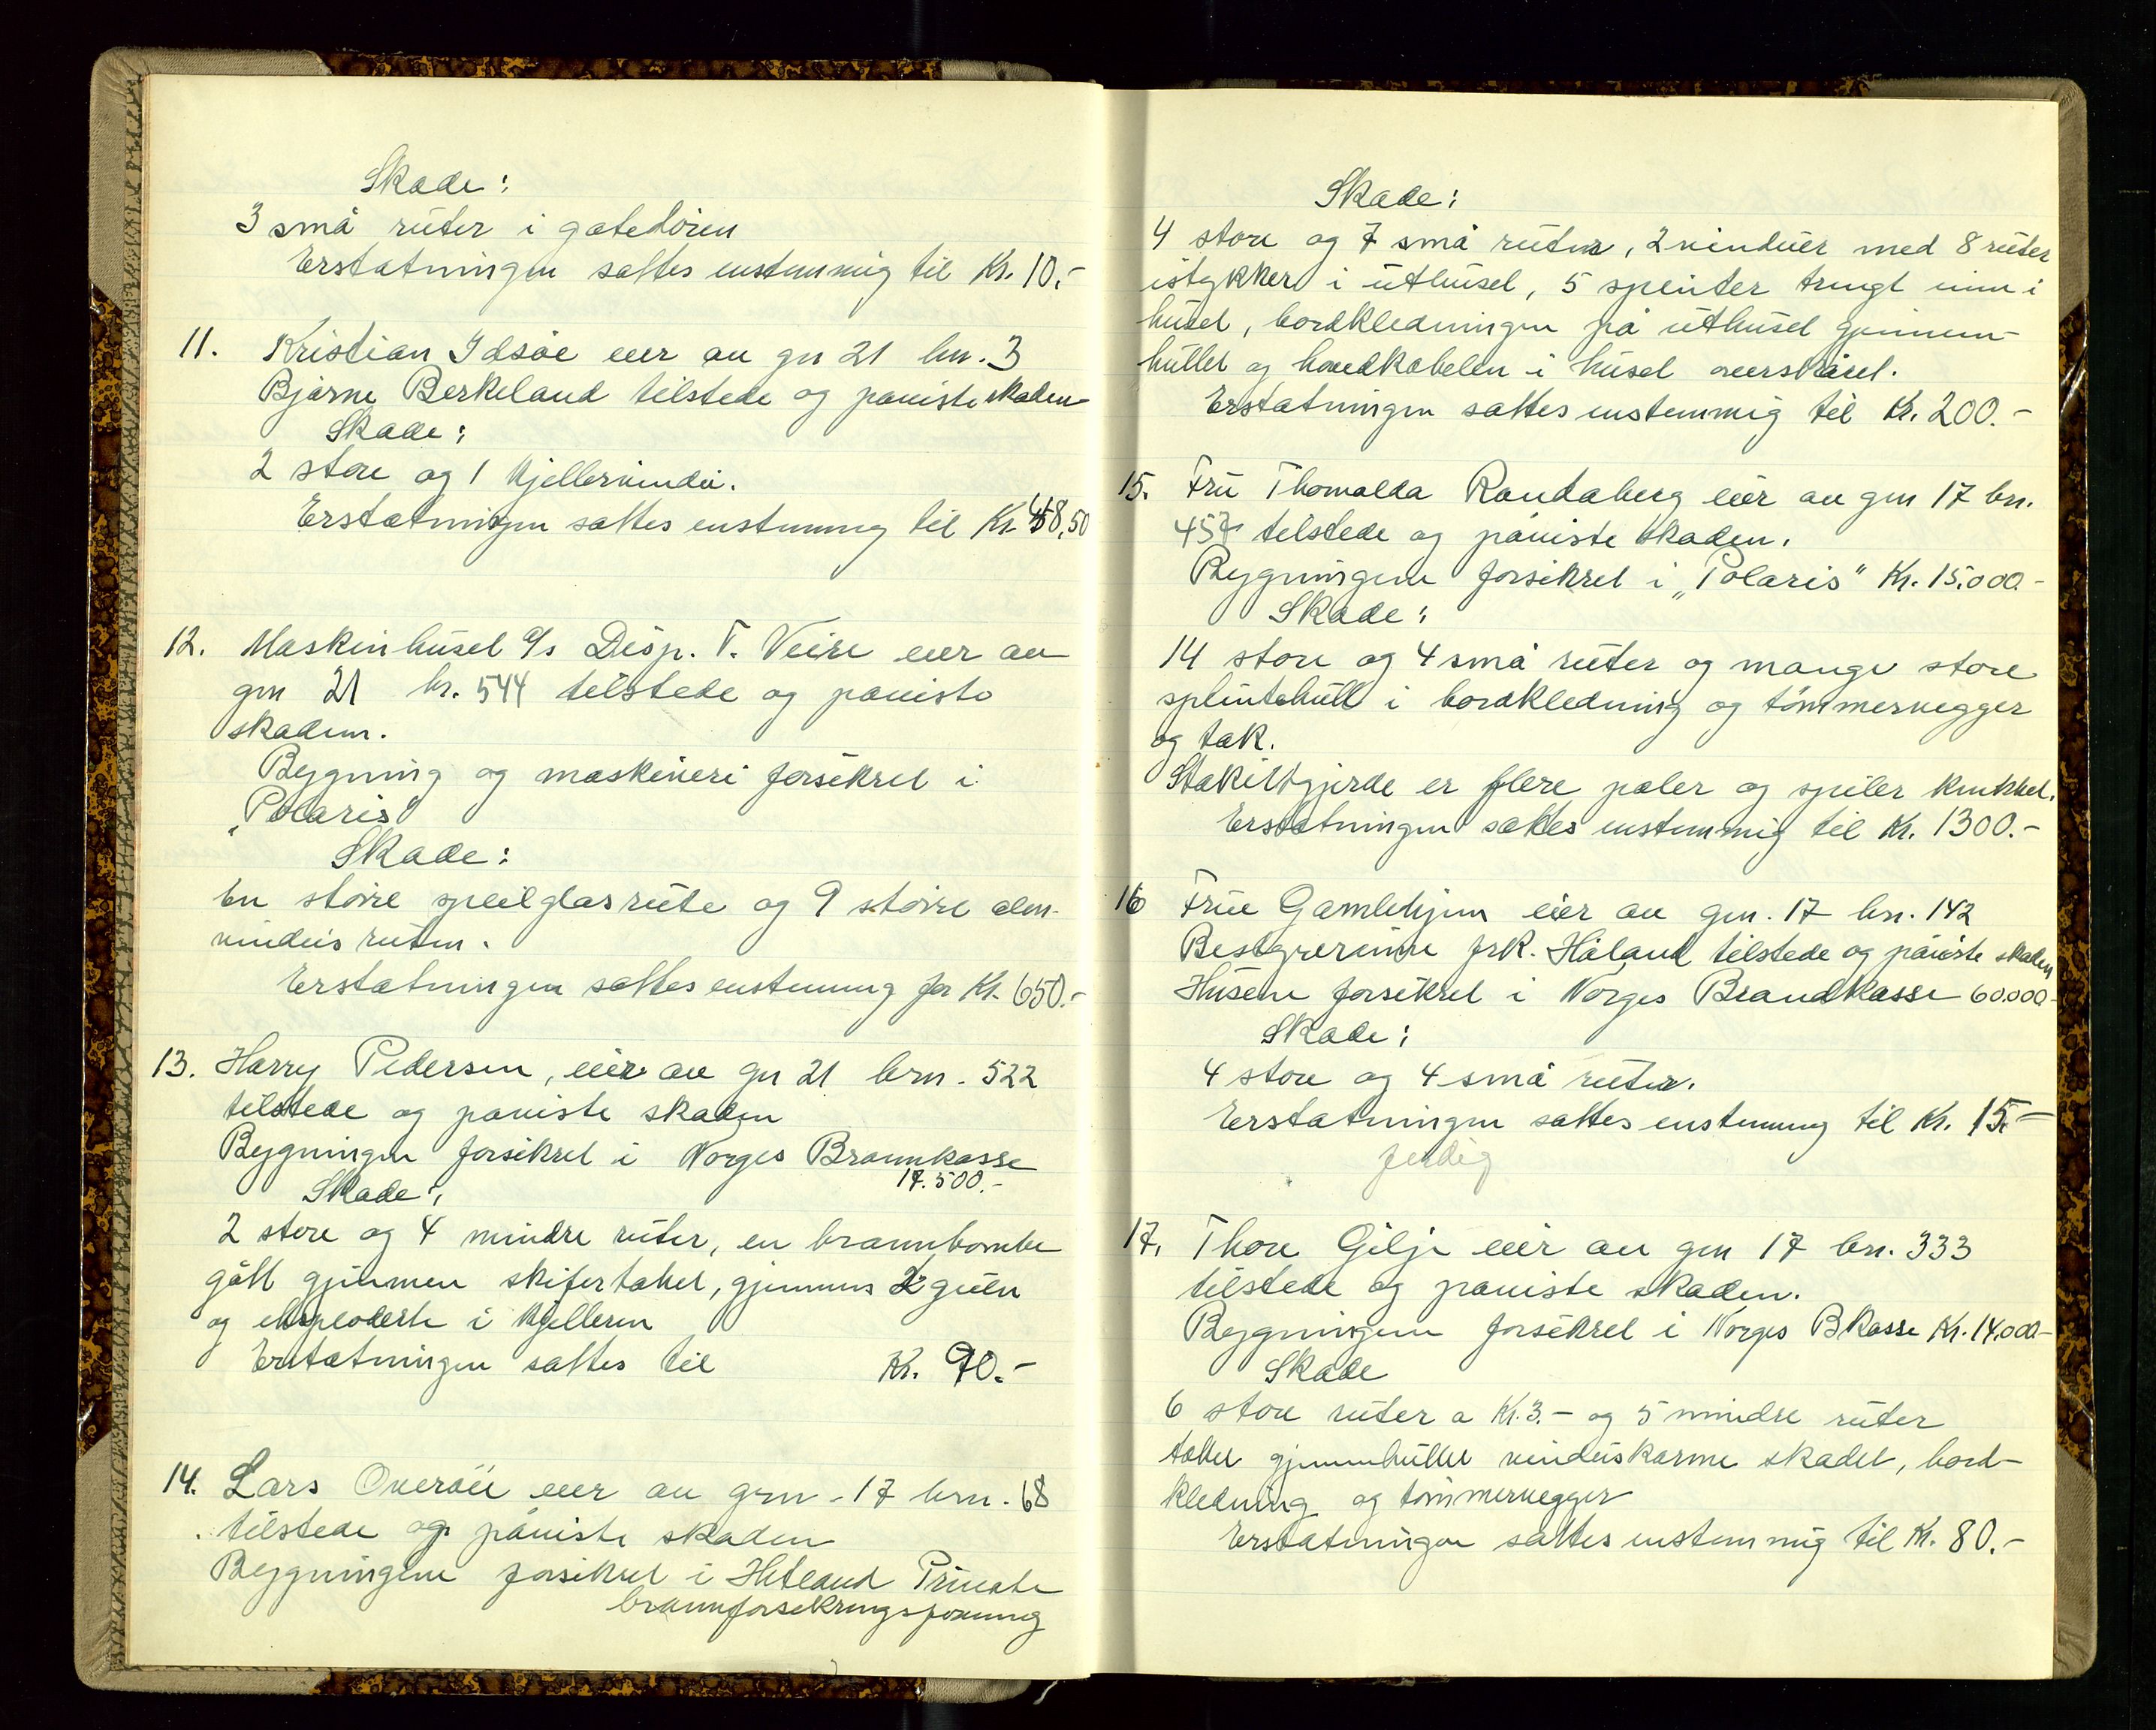 Skade:
3 små ruter i gatedören
Erstatningen sattes enstemmig til Kr. 10.-
11. Kristian Idsöe eier av gn 21 bn. 3
Bjarne Berkeland tilstede og påviste skaden
Skade:
2 store og 1 kjellervindu.
Erstatningen sattes enstemmig til Kr 48,50
12. Maskinhuset a/s Disp. T. Veire eier av
gn 21 br. 544 tilstede og påviste
skaden.
Bygning og maskineri forsikret i
„Polaris"
Skade:
En större speilglasrute og 9 större alm.
vinduisruten.
Erstatningen sattes enstemmig for Kr. 650.-
13. Harry Pedersen, eier av gn 21 brn. 522
tilstede og påviste skaden
Bygningen forsikret i Norges Brannkasse
17.500.-
Skade:
2 store og 4 mindre ruter, en brannbombe
gått gjennem skifertaket, gjennem 2 gulv
og eksploderte i kjelleren
Erstatningen sattes til Kr. 90.-
14. Lars Överöie eier av grn. 17 brn. 68
tilstede og påviste skaden
Bygningene forsikret i Hetland Private
brannforsikringsforening
Skade:
4 store og 7 små ruter, 2 vinduer med 8 ruter
istykker i uthuset, 5 splinter trengt inn i
huset, bordkledningen på uthuset gjennem-
hullet og hovedkabelen i huset overskåret.
Erstatningen sattes enstemmig til Kr. 200.-
15. Fru Thomalda Randaberg eier av gn 17 bn.
457 tilstede og påviste skaden.
Bygningene forsikret i „Polaris" Kr. 15.000.-
Skade:
14 store og 4 små ruter og mange store
splintehull i bordkledning og tömmervegger
og tak.
Stakittgjerde er flere pæler og spiler knekket.
Erstatningen sattes enstemmig til Kr. 1300.-
16 Frue Gamlehjem eier av gn. 17 bn. 142
Bestyrerinne frk. Håland tilstede og påviste skaden
Husene forsikret i Norges Brandkasse 60.000-
Skade:
4 store og 4 små ruter.
Erstatningen sattes enstemmig til Kr. 15.-
ferdig
17. Thore Gilje eier av gn 17 bn. 333
tilstede og påviste skaden.
Bygningene forsikret i Norges Bkasse Kr. 14,000-
Skade
6 store ruter a Kr. 3.- og 5 mindre ruter
taket gjennemhullet vinduskarme skadet, bord-
kledning og tömmervegger
Erstatningen sattes enstemmig til Kr. 80.-